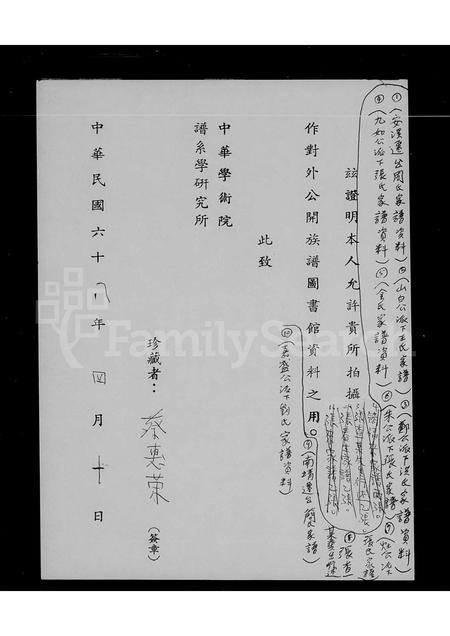 ①(安溪遷台周氏家譜資料)②(山白公派下王氏家譜)③(鄭公派下洪氏家譜資料
④(九如公派下張氏家譜資料)⑤(余氏家譜資料)⑥朱公派下張氏家譜)⑦(
張氏家譜
⑧張
茲證明本人允許貴所拍攝
作對外公開族譜圖書館資料之用。
⑨(南靖遷台簡氏家譜)
⑩(嘉盛公派下劉氏家譜資料)
此致
中華學術院
譜系學研究所
珍藏者：蔡惠荣(簽章)
中華民國六十八年四月十日
FamilySearch